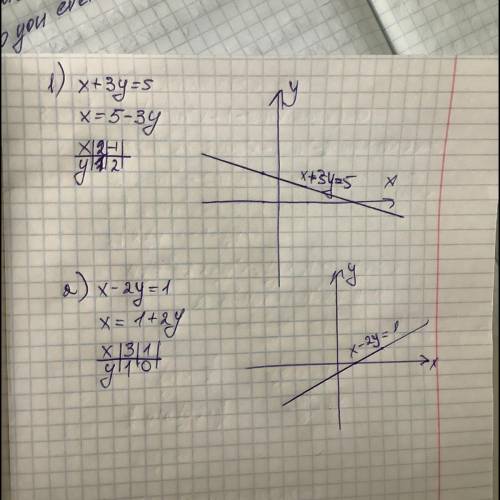 1) x+3y=5
x=5-3y
x|2|-1
y|1|2
y
x+3y=5
x
2) x-2y=1
x=1+2y
x|3|1|
y|1|0|
y
x-2y=1
x